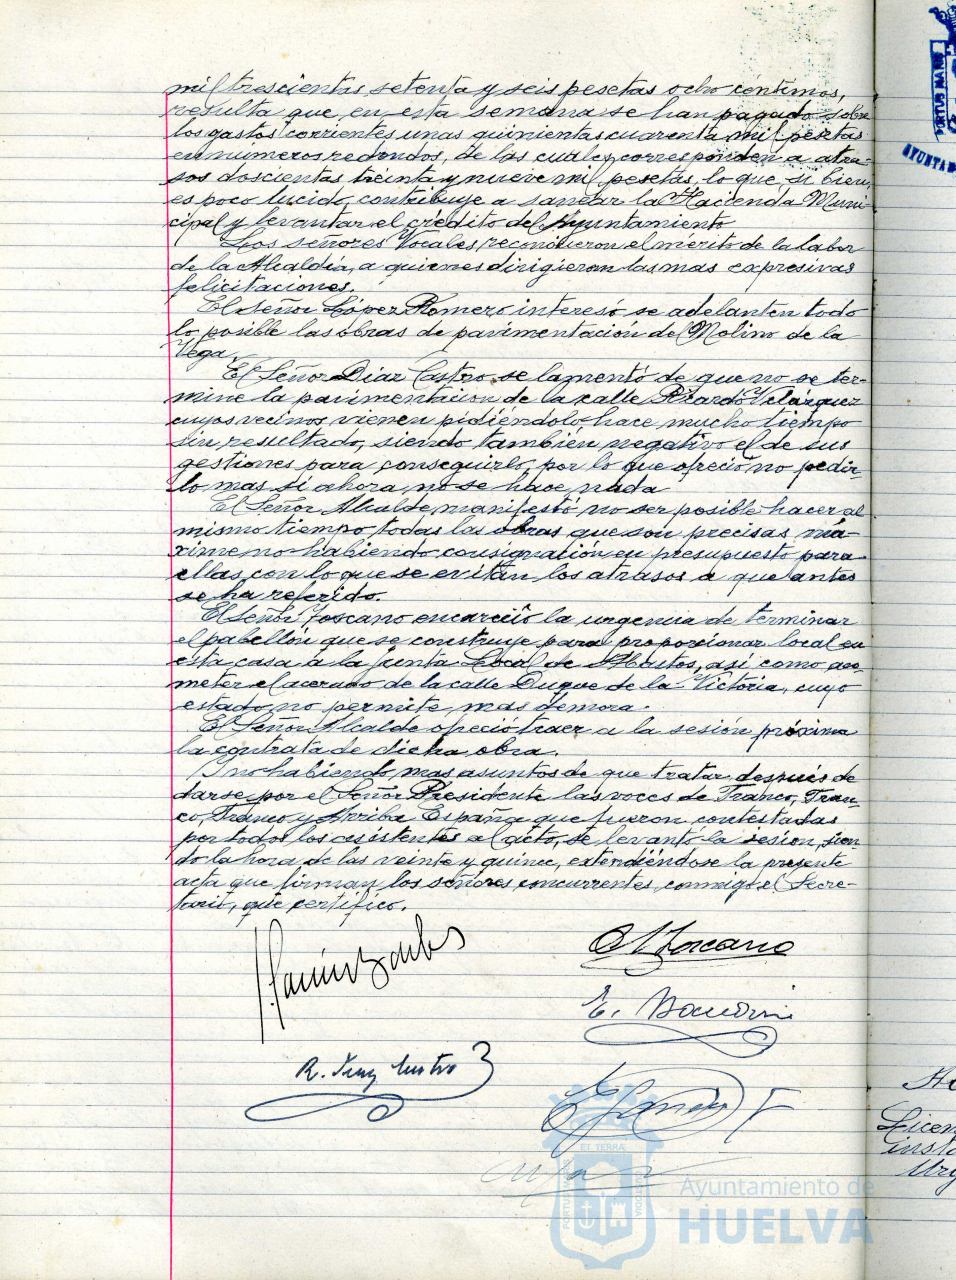 mil trescientas setenta y seis pesetas ocho céntimos,
resulta que en esta semana se han pagado sobre
los gastos corrientes unas quinientas cuarenta mil pesetas
en números redondos, de las cuales corresponden a atra-
sos doscientas treinta y nueve mil pesetas, lo que, si bien
es poco lucido, contribuye a sanear la Hacienda Muni-
cipal y levantar el crédito del Ayuntamiento
Los señores Vocales reconocieron el mérito de la labor
de la Alcaldía, a quienes dirigieron las mas expresivas
felicitaciones.
El Señor López Romero interesó se adelanten todo
lo posible las obras de pavimentación del Molino de la
Vega.
El Señor Díaz Castro se lamentó de que no se ter-
mine la pavimentacion de la calle Ricardo Velázquez
cuyos vecinos vienen pidiéndolo hace mucho tiempo
sin resultado, siendo también negativo el de sus
gestiones para conseguirlo, por lo que ofreció no pedir-
lo mas si ahora no se hace nada
El Señor Alcalde manifestó no ser posible hacer al
mismo tiempo todas las obras que son precisas má-
xime no habiendo consignación en presupuesto para
ellas con lo que se evitan los atrasos a que antes
se ha referido.
El Señor Toscano encareció la urgencia de terminar
el pabellón que se construye para proporcionar local en
esta casa a la Junta Local de Abastos, así como aco-
meter el acerado de la calle Duque de la Victoria, cuyo
estado no permite mas demora.
El Señor Alcalde ofreció traer a la sesión próxima
la contrata de dicha obra.
Y no habiendo mas asuntos de que tratar después de
darse por el Señor Presidente las voces de Franco, Fran-
co, Franco y Arriba España que fueron contestadas
por todos los asistentes al acto, se levantó la sesion, sien-
do la hora de las veinte y quince, extendiéndose la presente
acta que firman los señores concurrentes, conmigo el Secre-
tario, que certifico.
Toscano
E.
R. Díaz Castro
ET TERRA
PORTUS MARIS
CUSTODIA
Ayuntamiento de
HUELVA
PORTUS MARIS
AYUNTA
Licen
insta